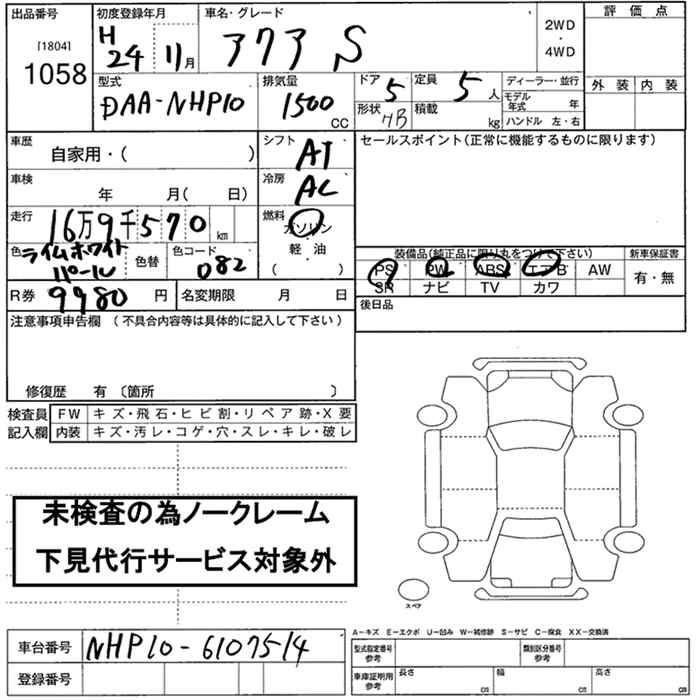 出品番号 初度登録年月 車名・グレード 評価点
[1804] H 24 11月 アクア S 2WD・4WD
1058
型式 排気量 ドア 5 定員 5人 ディーラー・並行 外装 内装
DAA-NHP10 1500 CC 形状 HB 積載 kg モデル年式 年
ハンドル 左・右
車歴 シフト セールスポイント(正常に機能するものに限ります)
自家用・( ) AT
車検 冷房
年 月( 日) AC
走行 燃料
16万9千570km ガソリン
色 ライムホワイトパール 色替 色コード 082 軽油 ( ) 装備品(純正品に限り丸をつけて下さい) 新車保証書
PS PW ABS エアB AW 有・無
R券 9980円 名変期限 月 日 SR ナビ TV カワ
後日品
注意事項申告欄 (不具合内容等は具体的に記入して下さい)
修復歴 有 〔箇所 〕
検査員 FW キズ・飛石・ヒビ割・リペア跡・X要
記入欄 内装 キズ・汚レ・コゲ・穴・スレ・キレ・破レ
未検査の為ノークレーム
下見代行サービス対象外
スペア
A−キズ E−エクボ U−凹み W−補修跡 S−サビ C−腐食 XX−交換済
車台番号 NHP10-6107514 型式指定番号 参考 類別区分番号 参考
登録番号 車庫証明用 参考 長さ cm 幅 cm 高さ cm